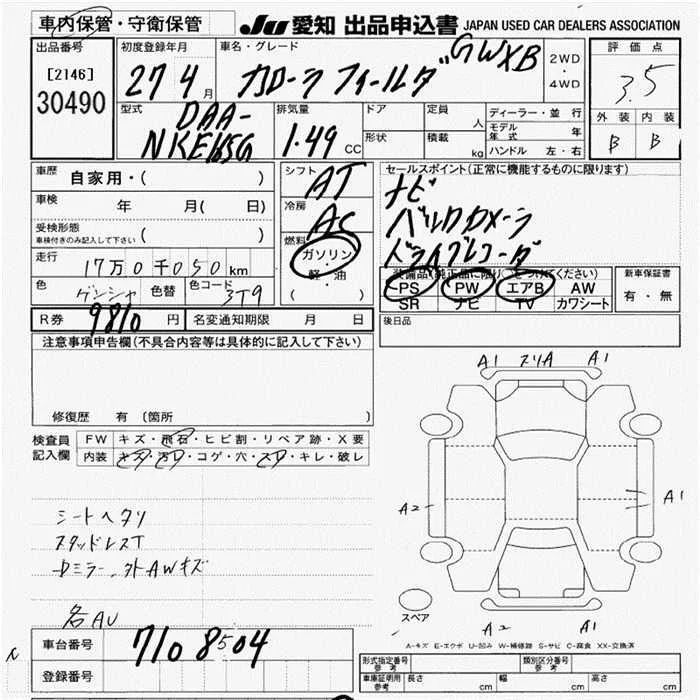 車内保管・守衛保管
JU 愛知 出品申込書 JAPAN USED CAR DEALERS ASSOCIATION
出品番号
[2146]
30490
初度登録年月
27 4 月
車名・グレード
カローラ フィールダ "GWXB
2WD
・
4WD
評価点
3.5
外装 内装
B B
型式
DAA-
NKE165G
排気量
1.49 CC
ドア
形状
定員 人
積載 kg
ディーラー・並行
モデル年式 年
ハンドル 左・右
車歴
自家用・( )
車検
年 月( 日)
受検形態
車検付きのみ記入して下さい ( )
走行
17万0千050km
色 ゲンシャ 色替 色コード 3T9
シフト
AT
冷房
AC
燃料
ガソリン
・
軽・油
( )
セールスポイント(正常に機能するものに限ります)
ナビ
バックカメラ
ドライブレコーダ
装備品(純正品に限り○をつけてください)
PS PW エアB AW
SR ナビ TV カワシート
新車保証書
有・無
R券 9810 円 名変通知期限 月 日
後日品
注意事項申告欄(不具合内容等は具体的に記入して下さい)
修復歴 有 〔箇所
検査員記入欄
FW キズ・飛石・ヒビ割・リペア跡・X要
内装 キズ・汚レ・コゲ・穴・スレ・キレ・破レ
シートヘタリ
スタッドレスT
Dミラー、外AWキズ
各AU
A1 スリA A1
A2 A1
A2 A1
スペア
A-キズ E-エクボ U-凹み W-補修跡 S-サビ C-腐食 XX-交換済
車台番号
7108504
登録番号
形式指定番号
参考
類別区分番号
参考
車庫証明用
参考
長さ cm 幅 cm 高さ cm